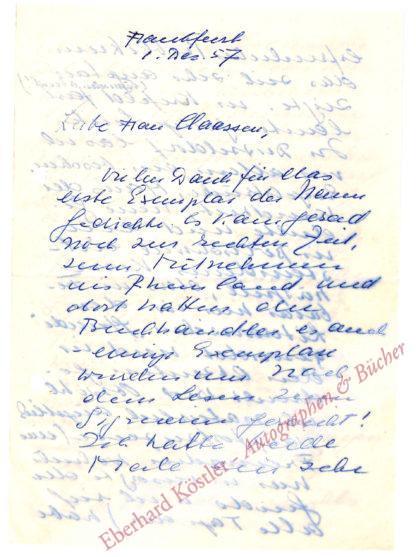 Frankfurt
1. Dez. 57
Liebe Frau Claassen,
vielen Dank für das
erste Exemplar der Neuen
Gedichte. Es kam gerad
noch zur rechten Zeit,
zum Mitnehmen
ins Rheinland und
dort hatten die
Buchhändler es auch
einige Exemplare
wurden mir nach
dem Lesen zum
Signieren gebracht!
Ich hatte beide
Male ein sehr
Eberhard Köstler - Autographen & Bücher